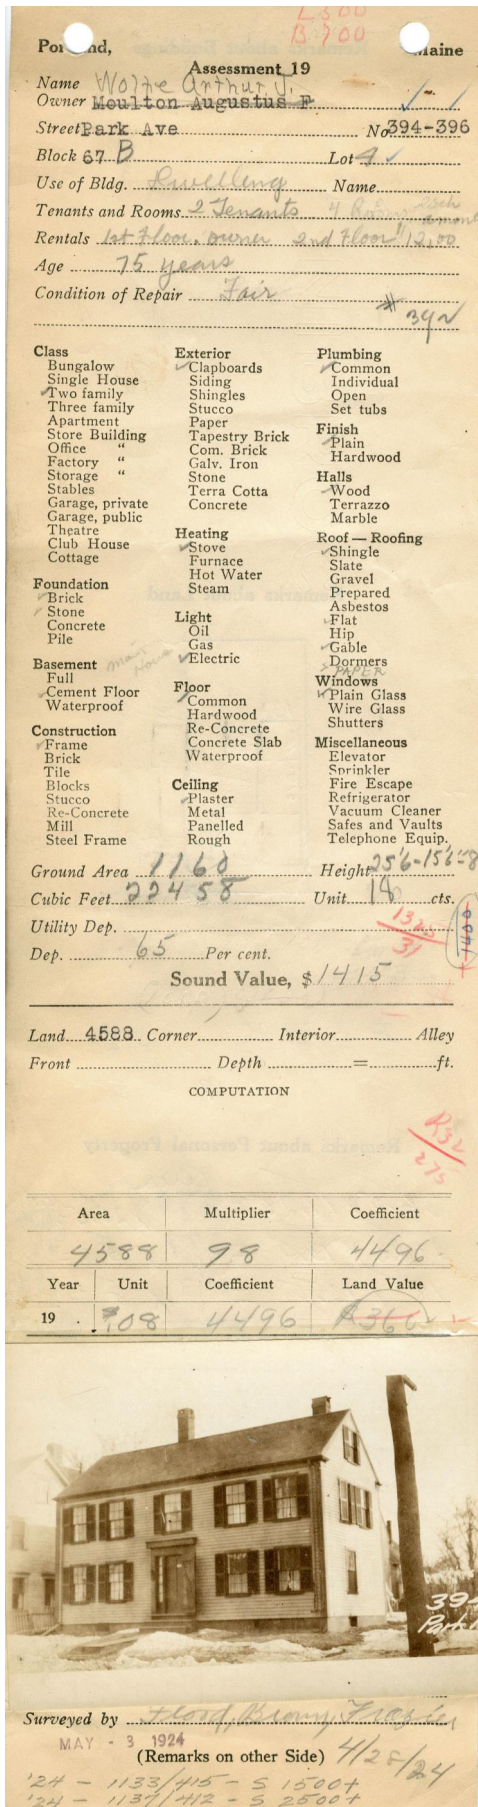 L 500
B 700
Portland, Maine
Assessment 19
Name Wolfe Arthur J.
Owner Moulton Augustus F
Street Park Ave No 394-396
Block 67 B Lot 4
Use of Bldg. Dwelling Name
Tenants and Rooms 2 Tenants 4 Rooms each
Rentals 1st Floor. owner 2nd Floor $12.00 a month
Age 75 years
Condition of Repair Fair
# 392
Class
Bungalow
Single House
Two family
Three family
Apartment
Store Building
Office "
Factory "
Storage "
Stables
Garage, private
Garage, public
Theatre
Club House
Cottage
Foundation
Brick
Stone
Concrete
Pile
Basement
Full
Cement Floor
Waterproof
main House
Construction
Frame
Brick
Tile
Blocks
Stucco
Re-Concrete
Mill
Steel Frame
Exterior
Clapboards
Siding
Shingles
Stucco
Paper
Tapestry Brick
Com. Brick
Galv. Iron
Stone
Terra Cotta
Concrete
Heating
Stove
Furnace
Hot Water
Steam
Light
Oil
Gas
Electric
Floor
Common
Hardwood
Re-Concrete
Concrete Slab
Waterproof
Ceiling
Plaster
Metal
Panelled
Rough
Plumbing
Common
Individual
Open
Set tubs
Finish
Plain
Hardwood
Halls
Wood
Terrazzo
Marble
Roof — Roofing
Shingle
Slate
Gravel
Prepared
Asbestos
Flat
Hip
Gable
Dormers
PAPER
Windows
Plain Glass
Wire Glass
Shutters
Miscellaneous
Elevator
Sprinkler
Fire Escape
Refrigerator
Vacuum Cleaner
Safes and Vaults
Telephone Equip.
Ground Area 1160 Height 25'6-15'6-8
Cubic Feet 22458 Unit 18 cts.
Utility Dep. 1325
31
1400
Dep. 65 Per cent.
Sound Value, $ 1415
Land 4588 Corner Interior Alley
Front Depth = ft.
COMPUTATION
R32
275
Area Multiplier Coefficient
4588 98 4496
Year Unit Coefficient Land Value
19 . $.08 4496 366
394
Park A
Surveyed by Flood, Brown, Frazier
MAY - 3 1924
(Remarks on other Side) 4/28/24
'24 - 1133/415 - S 1500+
'24 - 1137/412 - S 2500+